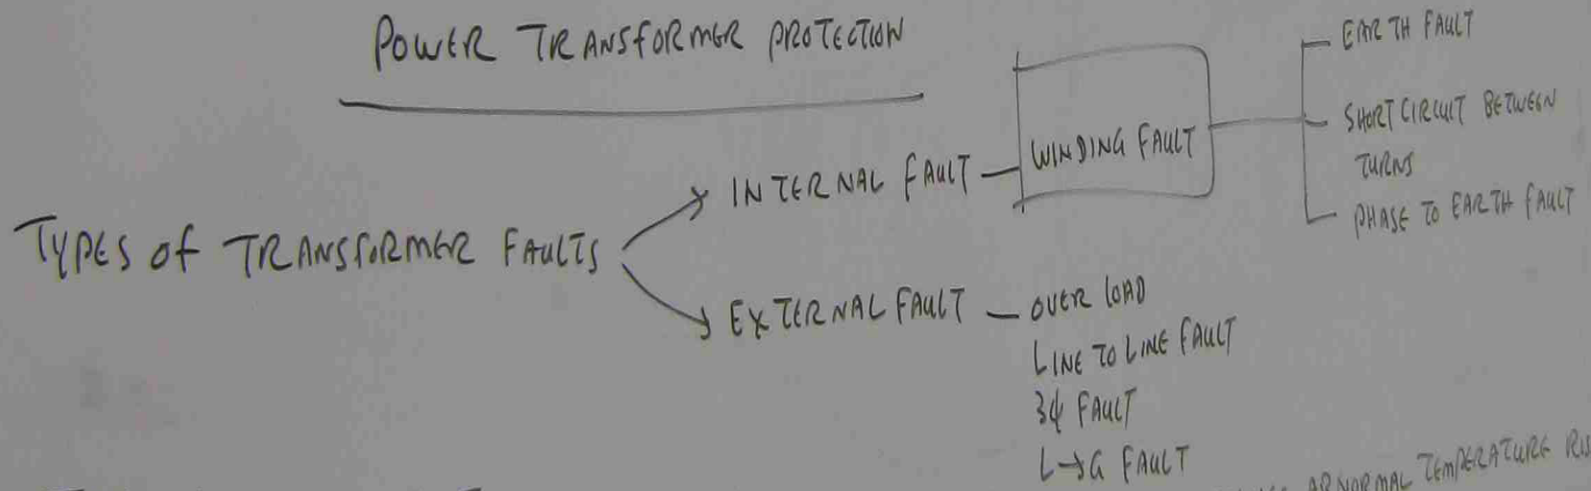 POWER TRANSFORMER PROTECTION
TYPES OF TRANSFORMER FAULTS
INTERNAL FAULT
WINDING FAULT
EARTH FAULT
SHORT CIRCUIT BETWEEN
TURNS
PHASE TO EARTH FAULT
EXTERNAL FAULT — OVER LOAD
LINE TO LINE FAULT
3ϕ FAULT
L→G FAULT
ABNORMAL TEMPERATURE